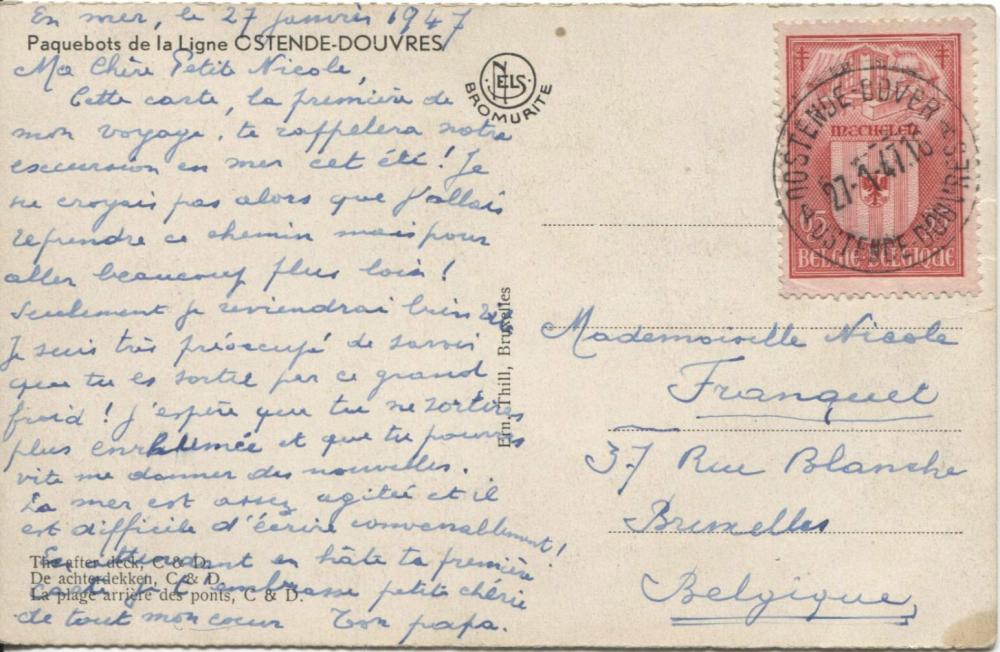 En mer, le 27 janvier 1947
Paquebots de la Ligne OSTENDE-DOUVRES
Ma Chère Petite Nicole,
Cette carte, la première de
mon voyage, te rappelera notre
excursion en mer cet été ! Je
ne croyais pas alors que j'allais
reprendre ce chemin mais pour
aller beaucoup plus loin !
Seulement je reviendrai bien
Je suis très préoccupé de savoir
que tu es sortie par ce grand
froid ! J'espère que tu ne sortiras
plus enrhumée et que tu pourras
vite me donner des nouvelles.
La mer est assez agitée et il
est difficile d'écrire convenablement !
En attendant en hâte ta première
The after deck, C & D.
De achterdekken, C & D.
je t'embrasse petite chérie
La plage arrière des ponts, C & D.
de tout mon coeur Ton papa.
NELS
BROMURITE
Ern. Thill, Bruxelles
MECHELEN
BELGIE-BELGIQUE
OOSTENDE-DOVER
27-1-47.16
OSTENDE DOUVRES
Mademoiselle Nicole
Franquet
37 Rue Blanche
Bruxelles
Belgique